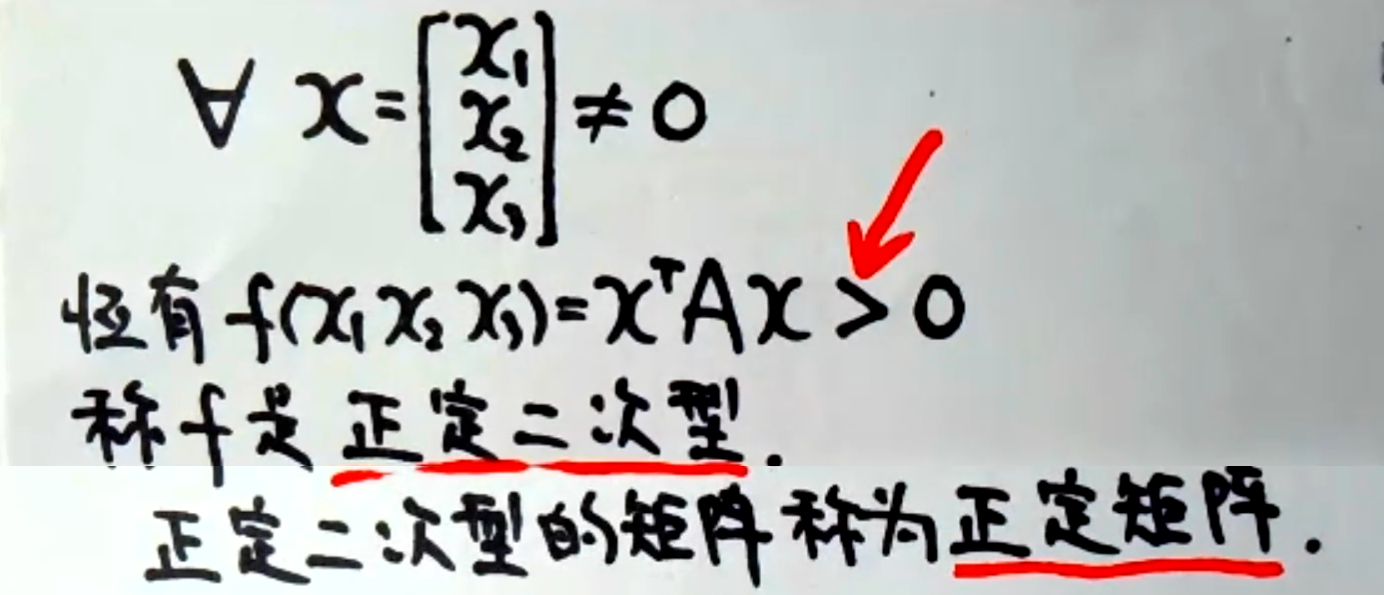 ∀ x = [x₁ x₂ x₃] ≠ 0
恒有 f(x₁ x₂ x₃) = xᵀAx > 0
称 f 是 正定二次型.
正定二次型的矩阵称为正定矩阵.